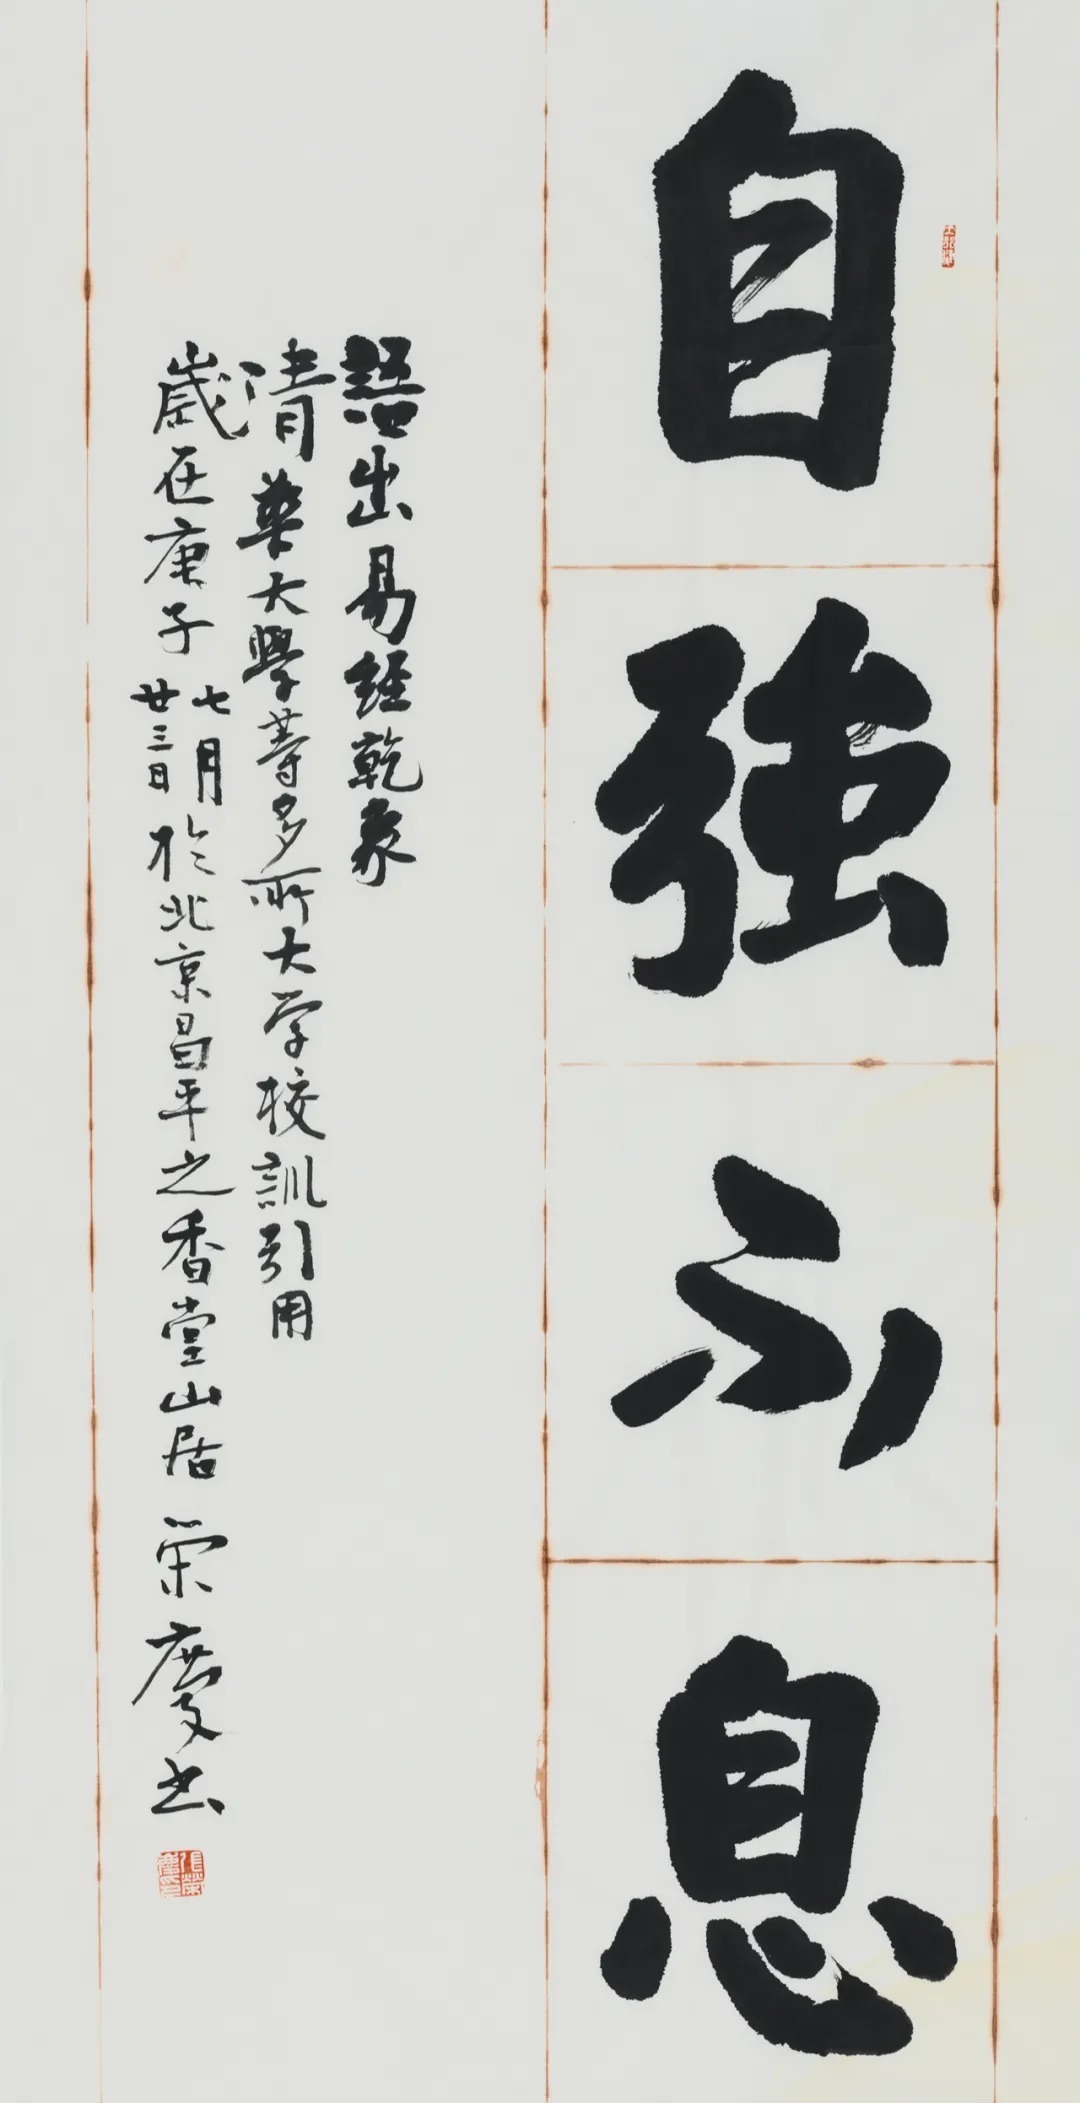 自強不息
語出易經乾象
清華大學等多所大学校訓引用
歲在庚子七月廿三日於北京昌平之香堂山居 荣慶书